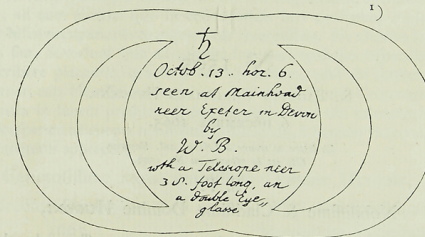 1)
♄
Octob. 13.. hor. 6.
seen at Mainhead
neer Exeter in Devon
by
W. B.
wth a Telescope neer
38. foot long, an
a double Eye,,
glasse